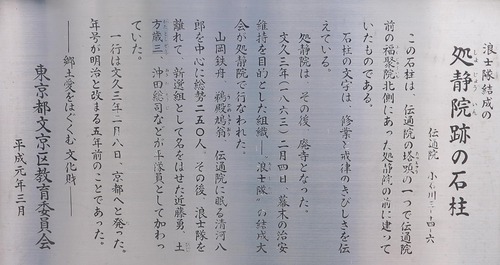 浪士隊結成の
処静院跡の石柱
伝通院 小石川三-一四-六
この石柱は、伝通院の塔頭の一つで伝通院
前の福聚院北側にあった処静院の前に建って
いたものである。
石柱の文字は、修業と戒律のきびしさを伝
えている。
処静院は、その後、廃寺となった。
文久三年(一八六三)二月四日、幕末の治安
維持を目的とした組織―"浪士隊"の結成大
会が処静院で行なわれた。
山岡鉄舟、鵜殿鳩翁、伝通院に眠る清河八
郎を中心に総勢二五〇人、その後、浪士隊を
離れて、新選組として名をはせた近藤勇、土
方歳三、沖田総司などが平隊員として加わっ
ていた。
一行は文久三年二月八日、京都へと発った。
年号が明治と改まる五年前のことであった。
―郷土愛をはぐくむ文化財―
東京都文京区教育委員会
平成元年三月